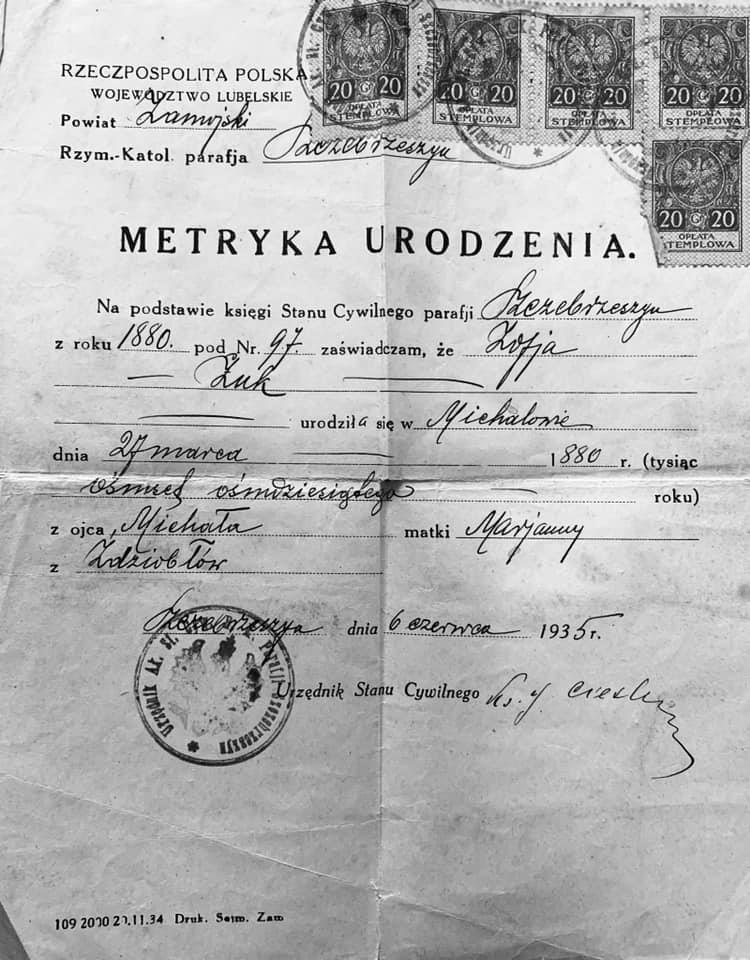 RZECZPOSPOLITA POLSKA
WOJEWÓDZTWO LUBELSKIE
Powiat Zamojski
Rzym.-Katol. parafja Szczebrzeszyn
20 G 20
OPŁATA
STEMPLOWA
20 G 20
OPŁATA
STEMPLOWA
20 G 20
OPŁATA
STEMPLOWA
20 G 20
OPŁATA
STEMPLOWA
20 G 20
OPŁATA
STEMPLOWA
METRYKA URODZENIA.
Na podstawie księgi Stanu Cywilnego parafji Szczebrzeszyn
z roku 1880. pod Nr. 97. zaświadczam, że Zofja
Żuk
urodziła się w Michalowie
dnia 27 marca 1880 r. (tysiąc
ośmset ośmdziesiątego roku)
z ojca Michała matki Marjanny
z Zdziobłów
Szczebrzeszyn dnia 6 czerwca 1935 r.
Urzędnik Ak. St. Parafji Szczebrzeszyn
Urzędnik Stanu Cywilnego Ks. J.
109 2000 20.11.34 Druk. Sejm. Zam